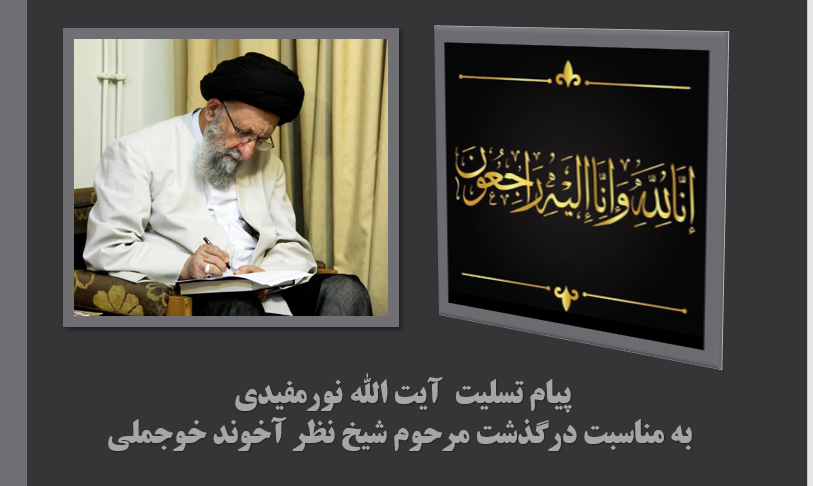 إنا لله وإنا إليه راجعون
پیام تسلیت آیت الله نورمفیدی
به مناسبت درگذشت مرحوم شیخ نظر آخوند خوجملی